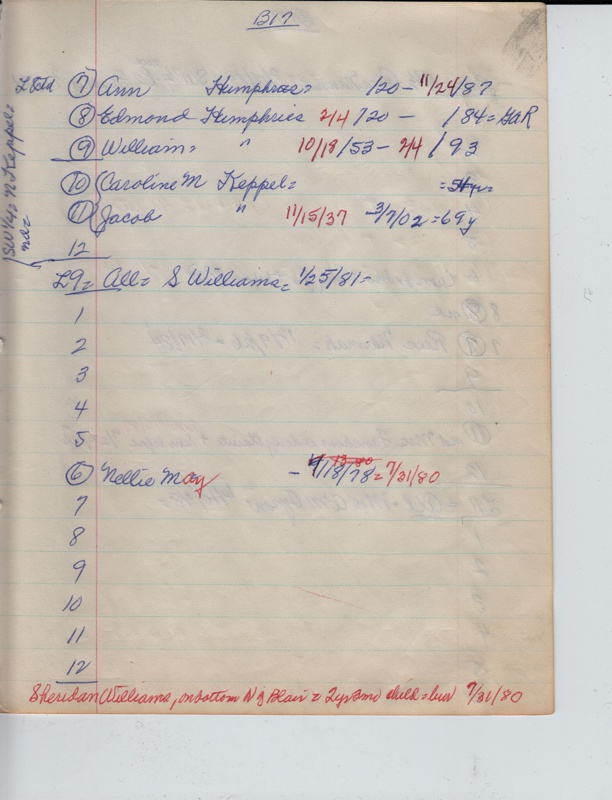 B17
L8 Old (7) Ann Humphries = /20 - 11/24/87
(8) Edmond Humphries 2/4/20 - /84 = GAR
(9) William = " 10/18/53 - 2/4/93
(10) Caroline M Keppel = = 54 yr =
(11) Jacob " 11/15/37 3/7/02 = 69 y
12
SW 1/4 = N Keppel =
L9 = All = S Williams = 1/25/81 =
1
2
3
4
5
(6) Nellie May - 4/18/78 = 7/31/80
7
8
9
10
11
12
Sheridan Williams, on bottom N g Blair = 2 yr 3 mo child = bur 7/31/80